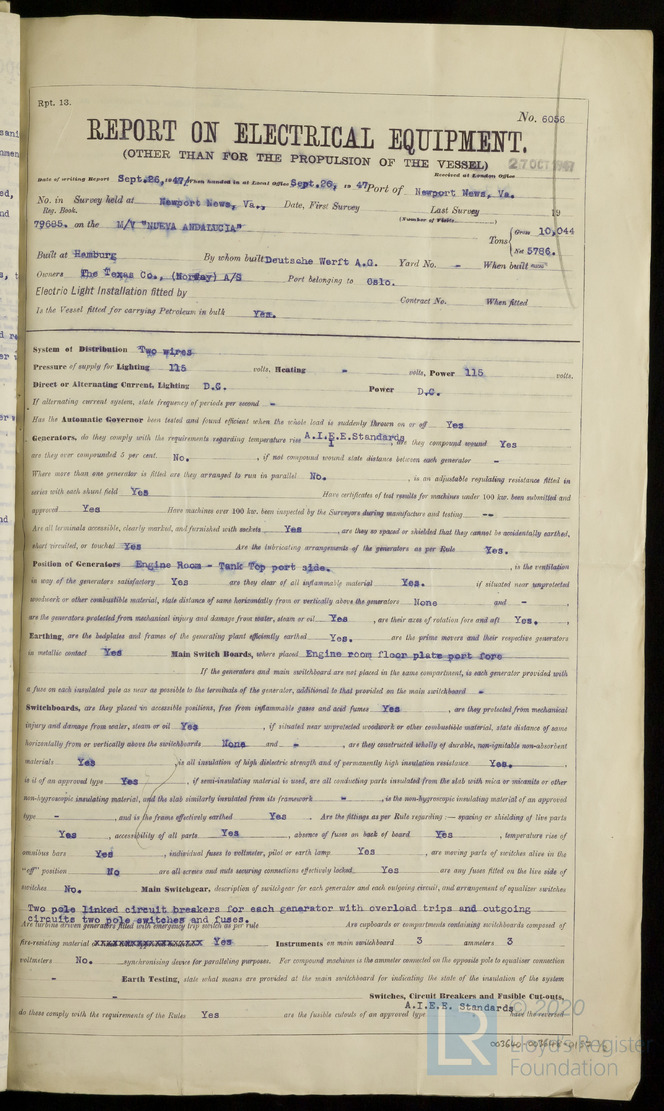 Rpt. 13.
No. 6056
REPORT ON ELECTRICAL EQUIPMENT.
(OTHER THAN FOR THE PROPULSION OF THE VESSEL)
27 OCT 1947
Date of writing Report Sept.26, 1947 When handed in at Local Office Sept.26, 1947 Port of Newport News, Va. Received at London Office
No. in Reg. Book. Survey held at Newport News, Va., Date, First Survey Last Survey 19
(Number of Visits
79685. on the M/V "NUEVA ANDALUCIA" Tons { Gross 10,044 Net 5786.
Built at Hamburg By whom built Deutsche Werft A.G. Yard No. - When built
Owners The Texas Co., (Norway) A/S Port belonging to Oslo.
Electric Light Installation fitted by Contract No. When fitted
Is the Vessel fitted for carrying Petroleum in bulk Yes.
System of Distribution Two wires
Pressure of supply for Lighting 115 volts, Heating - volts, Power 115 volts.
Direct or Alternating Current, Lighting D.C. Power D.C.
If alternating current system, state frequency of periods per second -
Has the Automatic Governor been tested and found efficient when the whole load is suddenly thrown on or off Yes
Generators, do they comply with the requirements regarding temperature rise A.I.E.E.Standards, are they compound wound Yes
are they over compounded 5 per cent. No. , if not compound wound state distance between each generator -
Where more than one generator is fitted are they arranged to run in parallel No. , is an adjustable regulating resistance fitted in
series with each shunt field Yes Have certificates of test results for machines under 100 kw. been submitted and
approved Yes Have machines over 100 kw. been inspected by the Surveyors during manufacture and testing --
Are all terminals accessible, clearly marked, and furnished with sockets Yes , are they so spaced or shielded that they cannot be accidentally earthed,
short circuited, or touched Yes Are the lubricating arrangements of the generators as per Rule Yes.
Position of Generators Engine Room - Tank Top port side. , is the ventilation
in way of the generators satisfactory Yes are they clear of all inflammable material Yes. if situated near unprotected
woodwork or other combustible material, state distance of same horizontally from or vertically above the generators None and - ,
are the generators protected from mechanical injury and damage from water, steam or oil Yes , are their axes of rotation fore and aft Yes. ,
Earthing, are the bedplates and frames of the generating plant efficiently earthed Yes. are the prime movers and their respective generators
in metallic contact Yes Main Switch Boards, where placed Engine room floor plate port fore
If the generators and main switchboard are not placed in the same compartment, is each generator provided with
a fuse on each insulated pole as near as possible to the terminals of the generator, additional to that provided on the main switchboard -
Switchboards, are they placed in accessible positions, free from inflammable gases and acid fumes Yes , are they protected from mechanical
injury and damage from water, steam or oil Yes , if situated near unprotected woodwork or other combustible material, state distance of same
horizontally from or vertically above the switchboards None and - , are they constructed wholly of durable, non-ignitable non-absorbent
materials Yes , is all insulation of high dielectric strength and of permanently high insulation resistance Yes. ,
is it of an approved type Yes , if semi-insulating material is used, are all conducting parts insulated from the slab with mica or micanite or other
non-hygroscopic insulating material, and the slab similarly insulated from its framework - , is the non-hygroscopic insulating material of an approved
type - , and is the frame effectively earthed Yes Are the fittings as per Rule regarding :— spacing or shielding of live parts
Yes , accessibility of all parts Yes , absence of fuses on back of board Yes , temperature rise of
omnibus bars Yes , individual fuses to voltmeter, pilot or earth lamp Yes , are moving parts of switches alive in the
"off" position No are all screws and nuts securing connections effectively locked Yes are any fuses fitted on the live side of
switches No. Main Switchgear, description of switchgear for each generator and each outgoing circuit, and arrangement of equalizer switches
Two pole linked circuit breakers for each generator with overload trips and outgoing
circuits two pole switches and fuses.
Are turbine driven generators fitted with emergency trip switch as per rule Are cupboards or compartments containing switchboards composed of
fire-resisting material xxxxxxxxxxxxxxxxx Yes Instruments on main switchboard 3 ammeters 3
voltmeters No. synchronising device for paralleling purposes. For compound machines is the ammeter connected on the opposite pole to equaliser connection
- Earth Testing, state what means are provided at the main switchboard for indicating the state of the insulation of the system
- Switches, Circuit Breakers and Fusible Cut-outs,
do these comply with the requirements of the Rules Yes are the fusible cutouts of an approved type A.I.E.E. Standards have the reversed
© 2020
Lloyd's Register
Foundation
LR